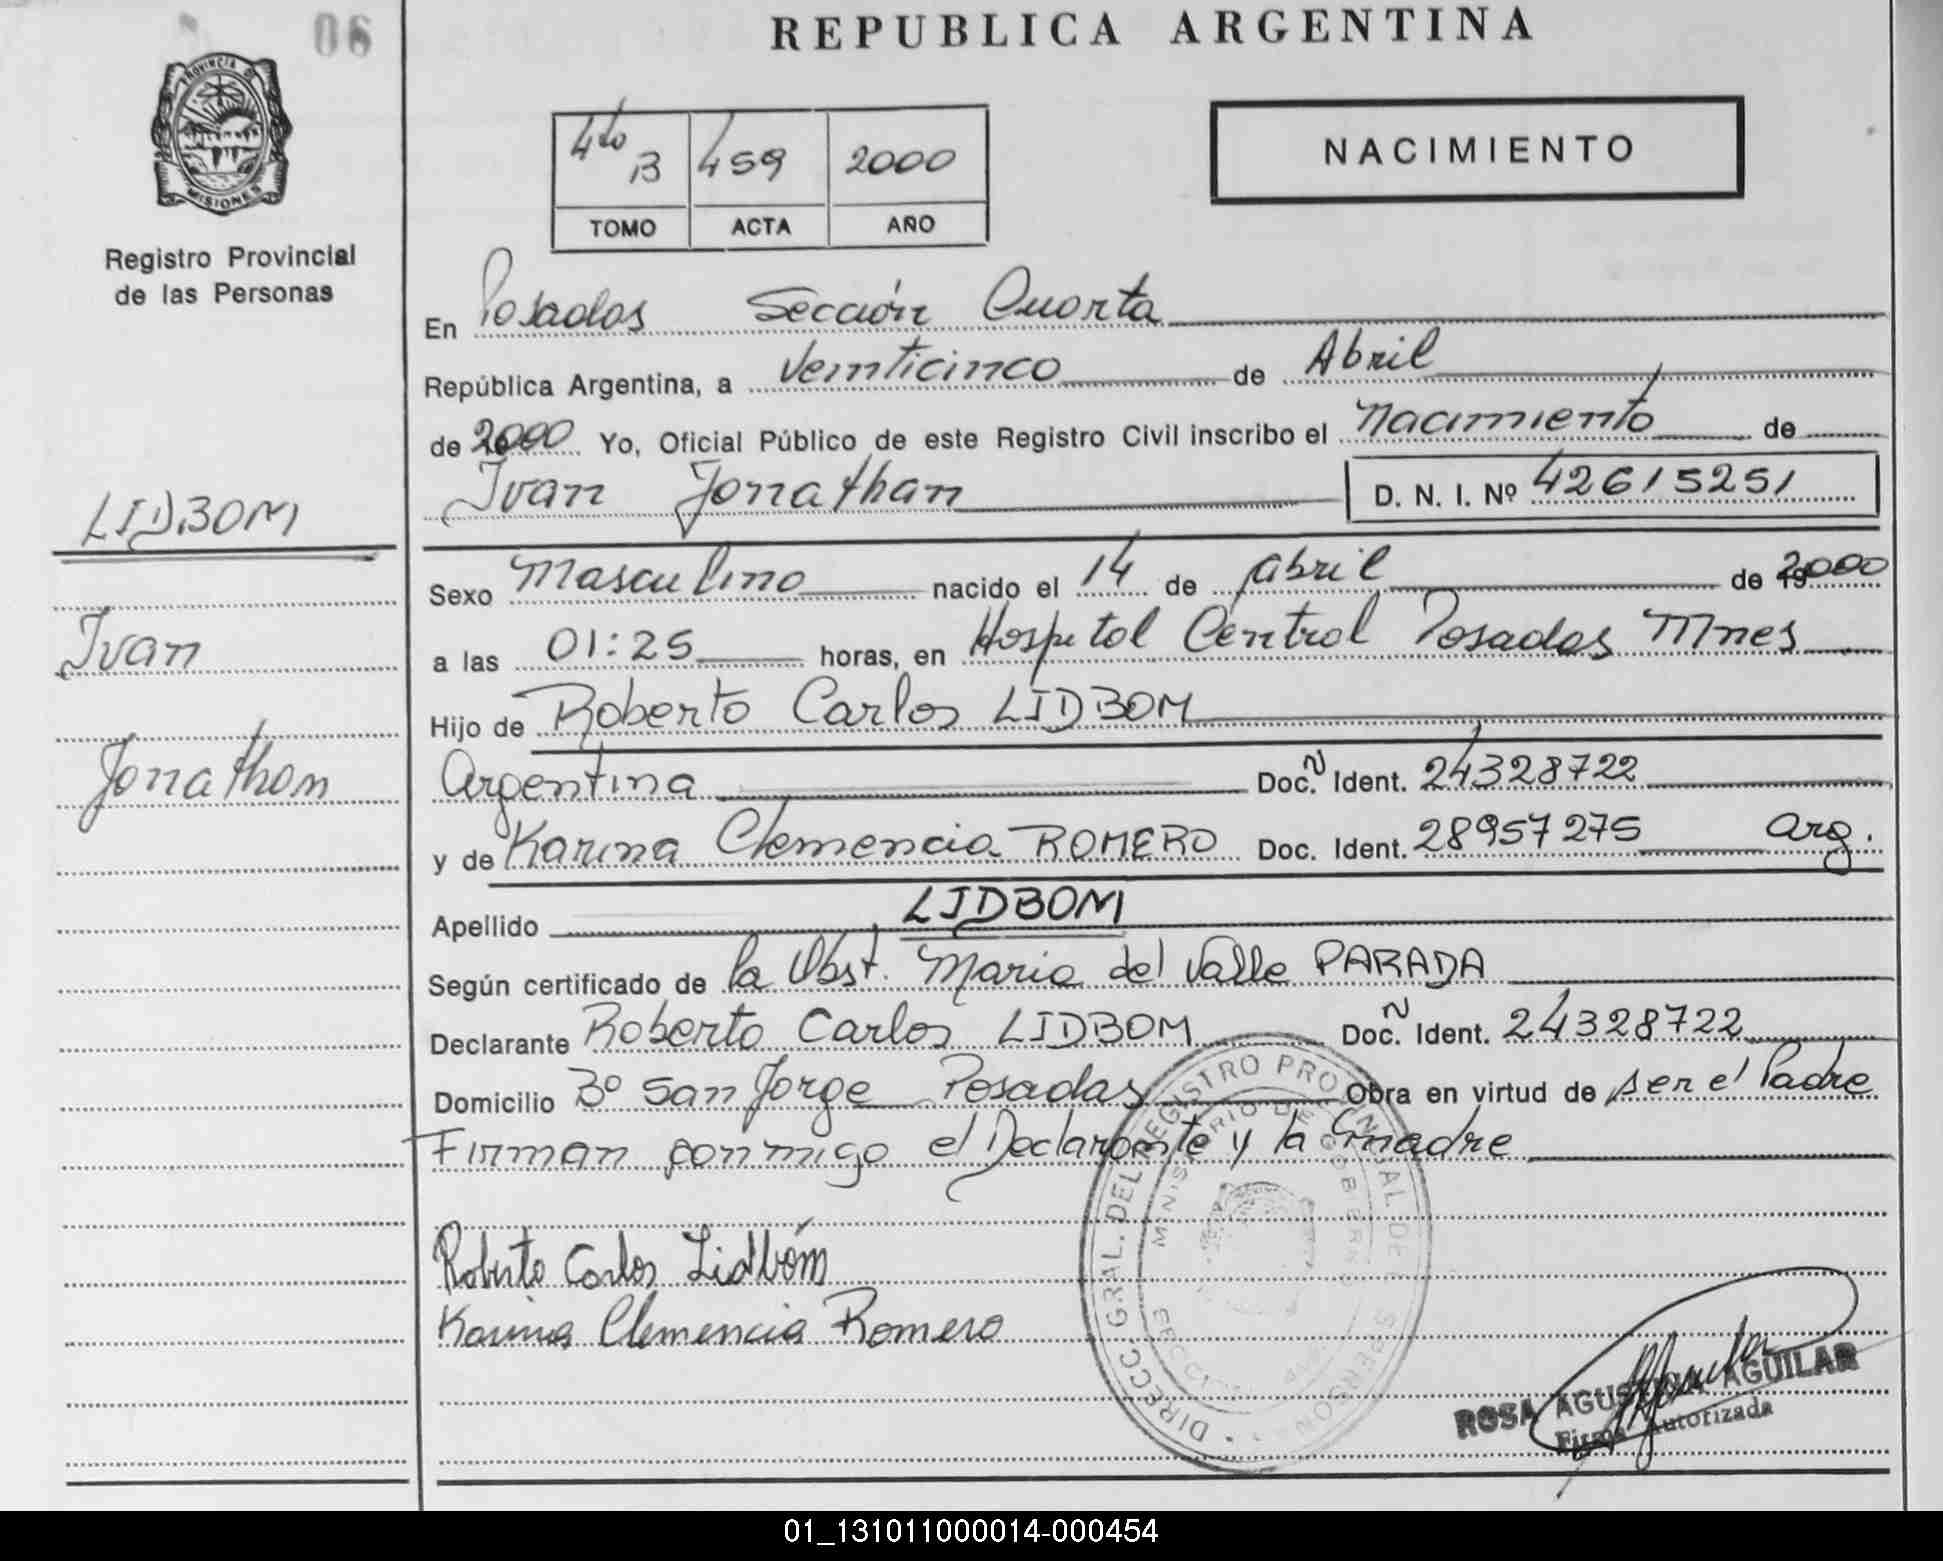 06
REPUBLICA ARGENTINA
PROVINCIA DE
MISIONES
Registro Provincial
de las Personas
4to B 459 2000
TOMO ACTA AÑO
NACIMIENTO
En Posadas Sección Cuarta
República Argentina, a Veinticinco de Abril
de 2000 Yo, Oficial Público de este Registro Civil inscribo el Nacimiento de
Ivan Jonathan D. N. I. Nº 42615251
LIDBOM
Sexo Masculino nacido el 14 de abril de 2000
Ivan
a las 01:25 horas, en Hospital Central Posadas Mnes
Hijo de Roberto Carlos LIDBOM
Jonathan
Argentina Doc. N Ident. 24328722
y de Karina Clemencia ROMERO Doc. Ident. 28957275 Arg.
Apellido LIDBOM
Según certificado de la Obst. Maria del Valle PARADA
Declarante Roberto Carlos LIDBOM Doc. N Ident. 24328722
Domicilio Bº San Jorge Posadas Obra en virtud de ser el Padre
Firman conmigo el Declarante y la madre
Roberto Carlos Lidbóm
Karina Clemencia Romero
DIRECC. GRAL. DEL REGISTRO PROVINCIAL DE
MINISTERIO DE GOBIERNO
ROSA AGUSTINA AGUILAR
Firma Autorizada
01_131011000014-000454